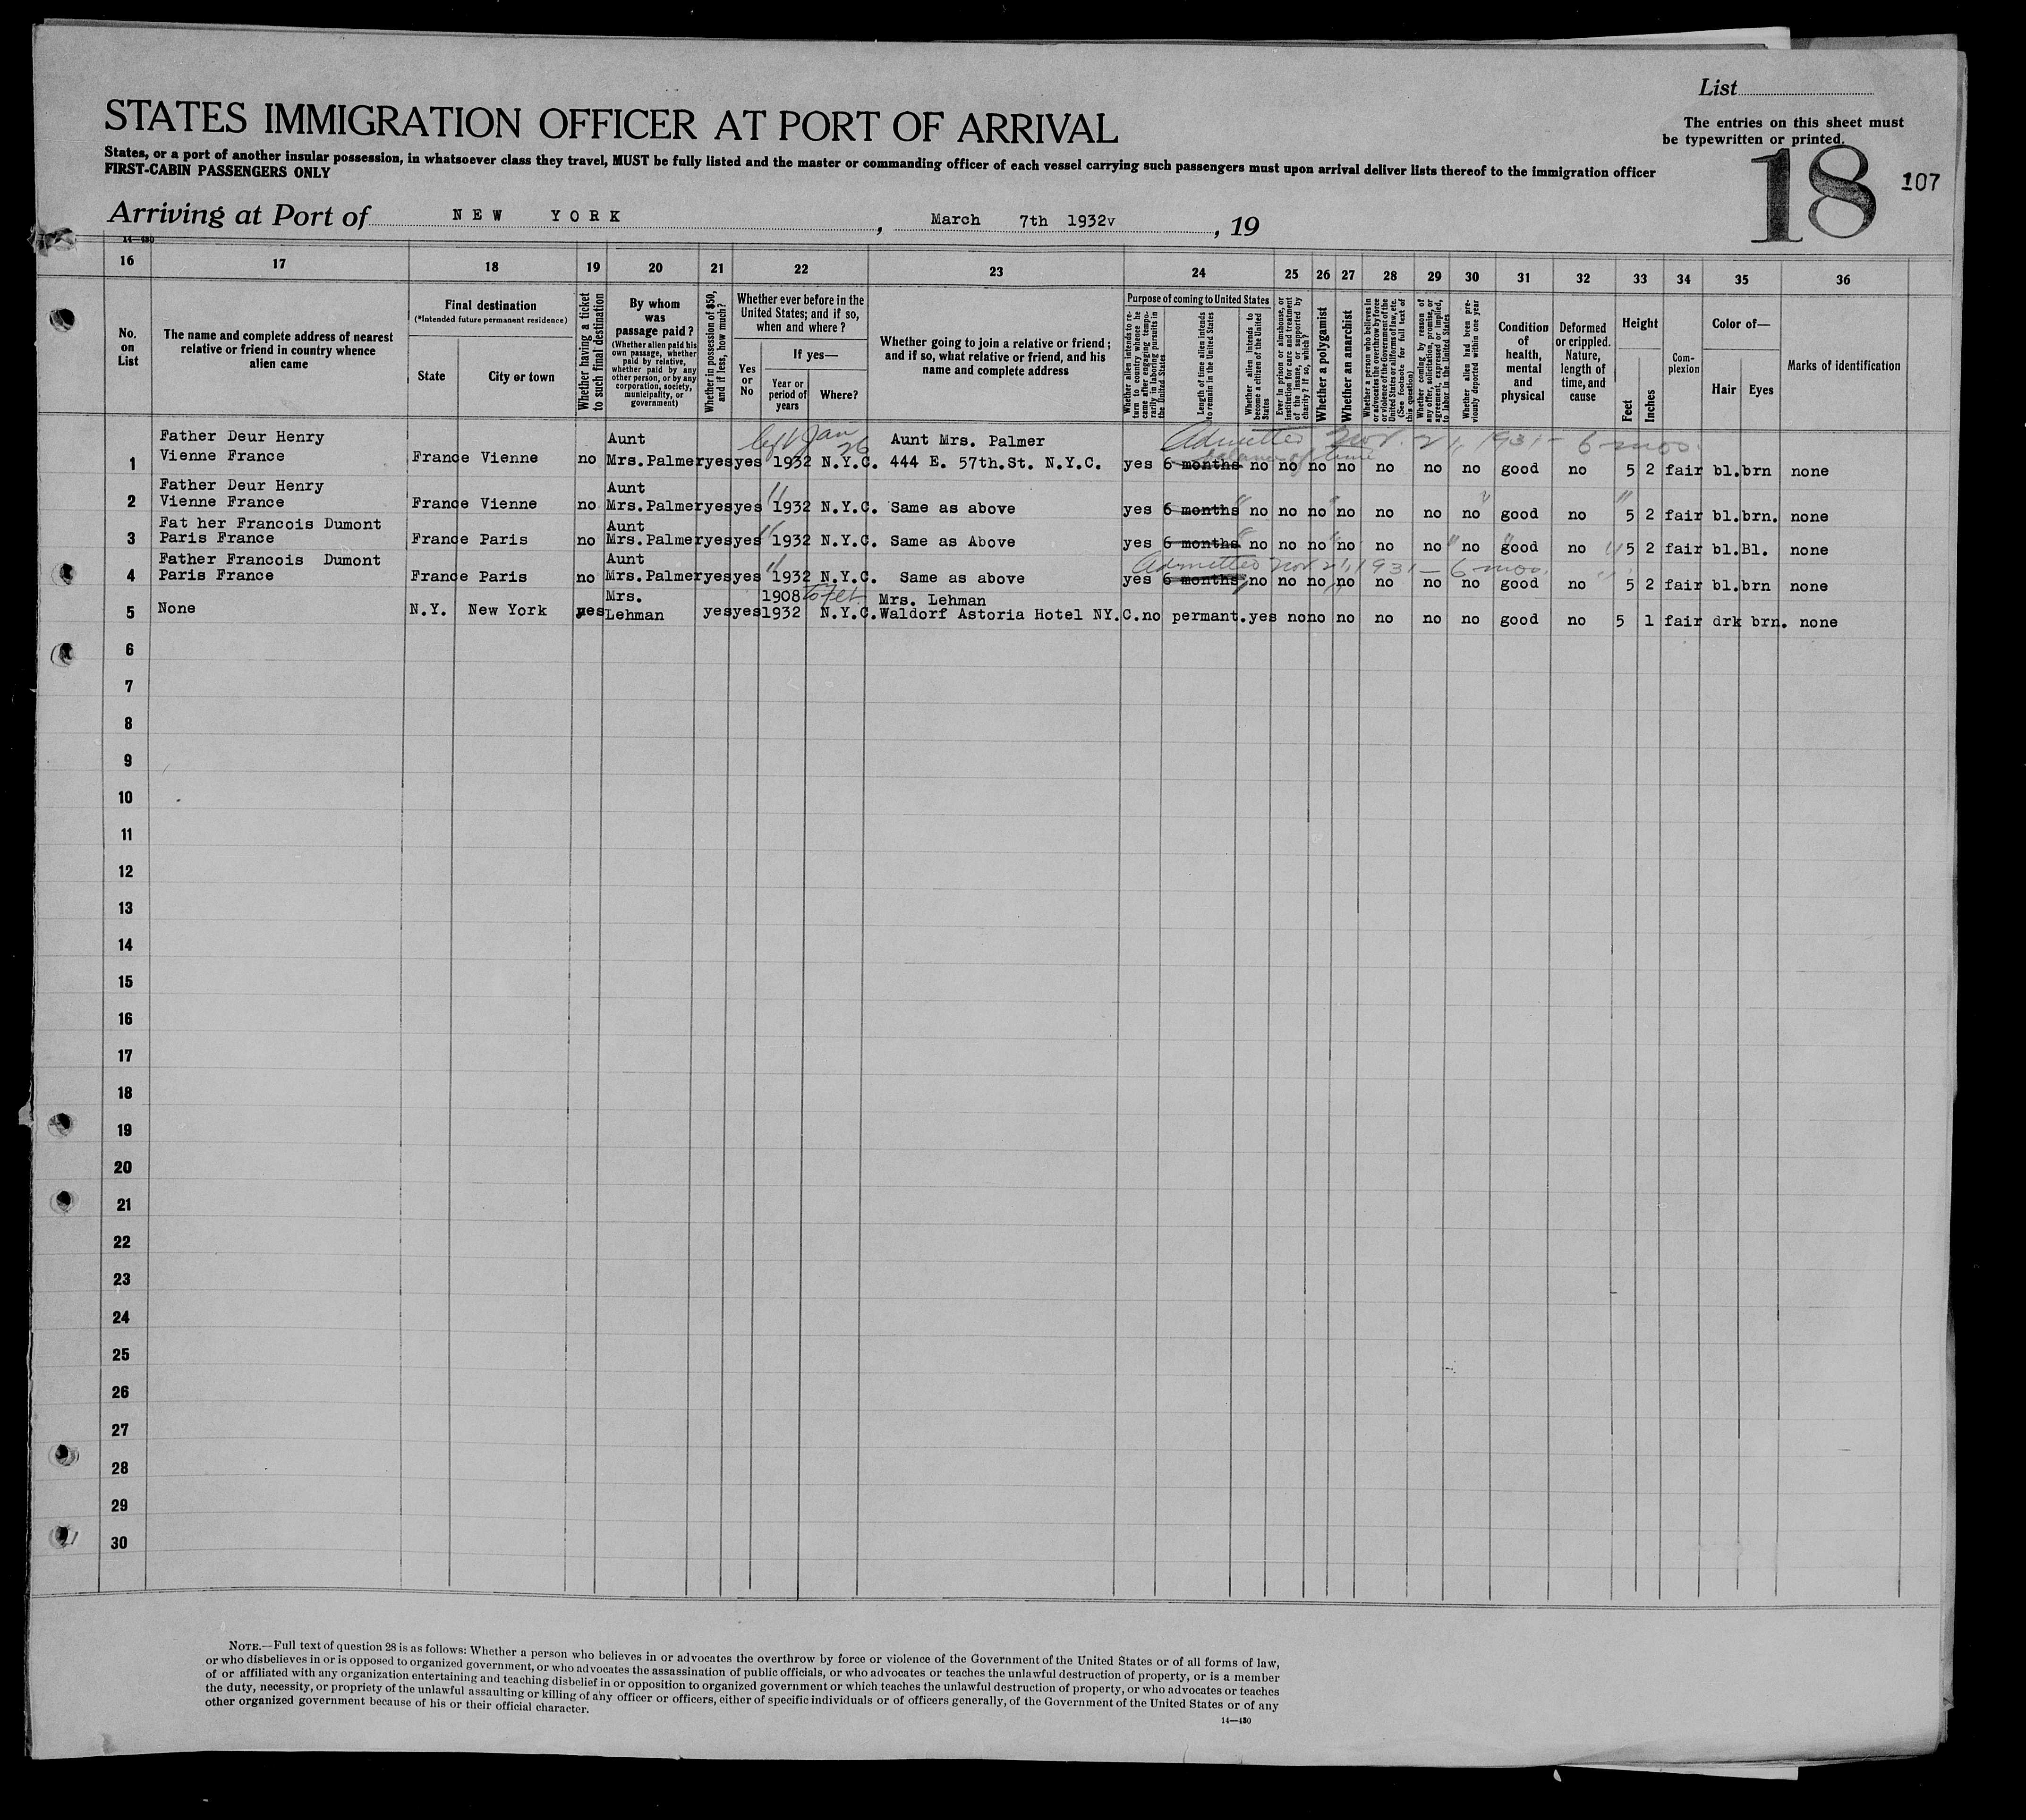 List
The entries on this sheet must
be typewritten or printed.
STATES IMMIGRATION OFFICER AT PORT OF ARRIVAL
States, or a port of another insular possession, in whatsoever class they travel, MUST be fully listed and the master or commanding officer of each vessel carrying such passengers must upon arrival deliver lists thereof to the immigration officer
FIRST-CABIN PASSENGERS ONLY
18
107
Arriving at Port of NEW YORK, March 7th 1932v, 19
14—430
16 17 18 19 20 21 22 23 24 25 26 27 28 29 30 31 32 33 34 35 36
No. on List
The name and complete address of nearest relative or friend in country whence alien came
Final destination
(*Intended future permanent residence)
State
City or town
Whether having a ticket to such final destination
By whom was passage paid?
(Whether alien paid his own passage, whether paid by relative, whether paid by any other person, or by any corporation, society, municipality, or government)
Whether in possession of $50, and if less, how much?
Whether ever before in the United States; and if so, when and where?
Yes or No
If yes—
Year or period of years
Where?
Whether going to join a relative or friend; and if so, what relative or friend, and his name and complete address
Purpose of coming to United States
Whether alien intends to return to country whence he came after engaging temporarily in laboring pursuits in the United States
Length of time alien intends to remain in the United States
Whether alien intends to become a citizen of the United States
Ever in prison or almshouse, or institution for care and treatment of the insane, or supported by charity? If so, which?
Whether a polygamist
Whether an anarchist
Whether a person who believes in or advocates the overthrow by force or violence of the Government of the United States or all forms of law, etc. (See footnote for full text of this question)
Whether coming by reason of any offer, solicitation, promise, or agreement, expressed or implied, to labor in the United States
Whether alien had been previously deported within one year
Condition of health, mental and physical
Deformed or crippled. Nature, length of time, and cause
Height
Feet
Inches
Complexion
Color of—
Hair
Eyes
Marks of identification
Father Deur Henry Aunt left Jan 26 Aunt Mrs. Palmer Admitted Nov. 21, 1931 - 6 mos.
balance of time
1 Vienne France France Vienne no Mrs.Palmer yes yes 1932 N.Y.C. 444 E. 57th.St. N.Y.C. yes 6 months no no no no no no no good no 5 2 fair bl. brn none
Father Deur Henry Aunt "
2 Vienne France France Vienne no Mrs.Palmer yes yes 1932 N.Y.C. Same as above yes 6 months no no no no no no no good no 5 2 fair bl. brn. none
Fat her Francois Dumont Aunt "
3 Paris France France Paris no Mrs.Palmer yes yes 1932 N.Y.C. Same as Above yes 6 months no no no no no no no good no 5 2 fair bl. Bl. none
Father Francois Dumont Aunt " Admitted Nov 21, 1931 - 6 mos.
4 Paris France France Paris no Mrs.Palmer yes yes 1932 N.Y.C. Same as above yes 6 months no no no no no no no good no 5 2 fair bl. brn none
Mrs. 1908 to Feb Mrs. Lehman
5 None N.Y. New York yes Lehman yes yes 1932 N.Y.C. Waldorf Astoria Hotel NY.C. no permant. yes no no no no no no good no 5 1 fair drk brn. none
6
7
8
9
10
11
12
13
14
15
16
17
18
19
20
21
22
23
24
25
26
27
28
29
30
NOTE.—Full text of question 28 is as follows: Whether a person who believes in or advocates the overthrow by force or violence of the Government of the United States or of all forms of law,
or who disbelieves in or is opposed to organized government, or who advocates the assassination of public officials, or who advocates or teaches the unlawful destruction of property, or is a member
of or affiliated with any organization entertaining and teaching disbelief in or opposition to organized government or which teaches the unlawful destruction of property, or who advocates or teaches
the duty, necessity, or propriety of the unlawful assaulting or killing of any officer or officers, either of specific individuals or of officers generally, of the Government of the United States or of any
other organized government because of his or their official character.
14—430